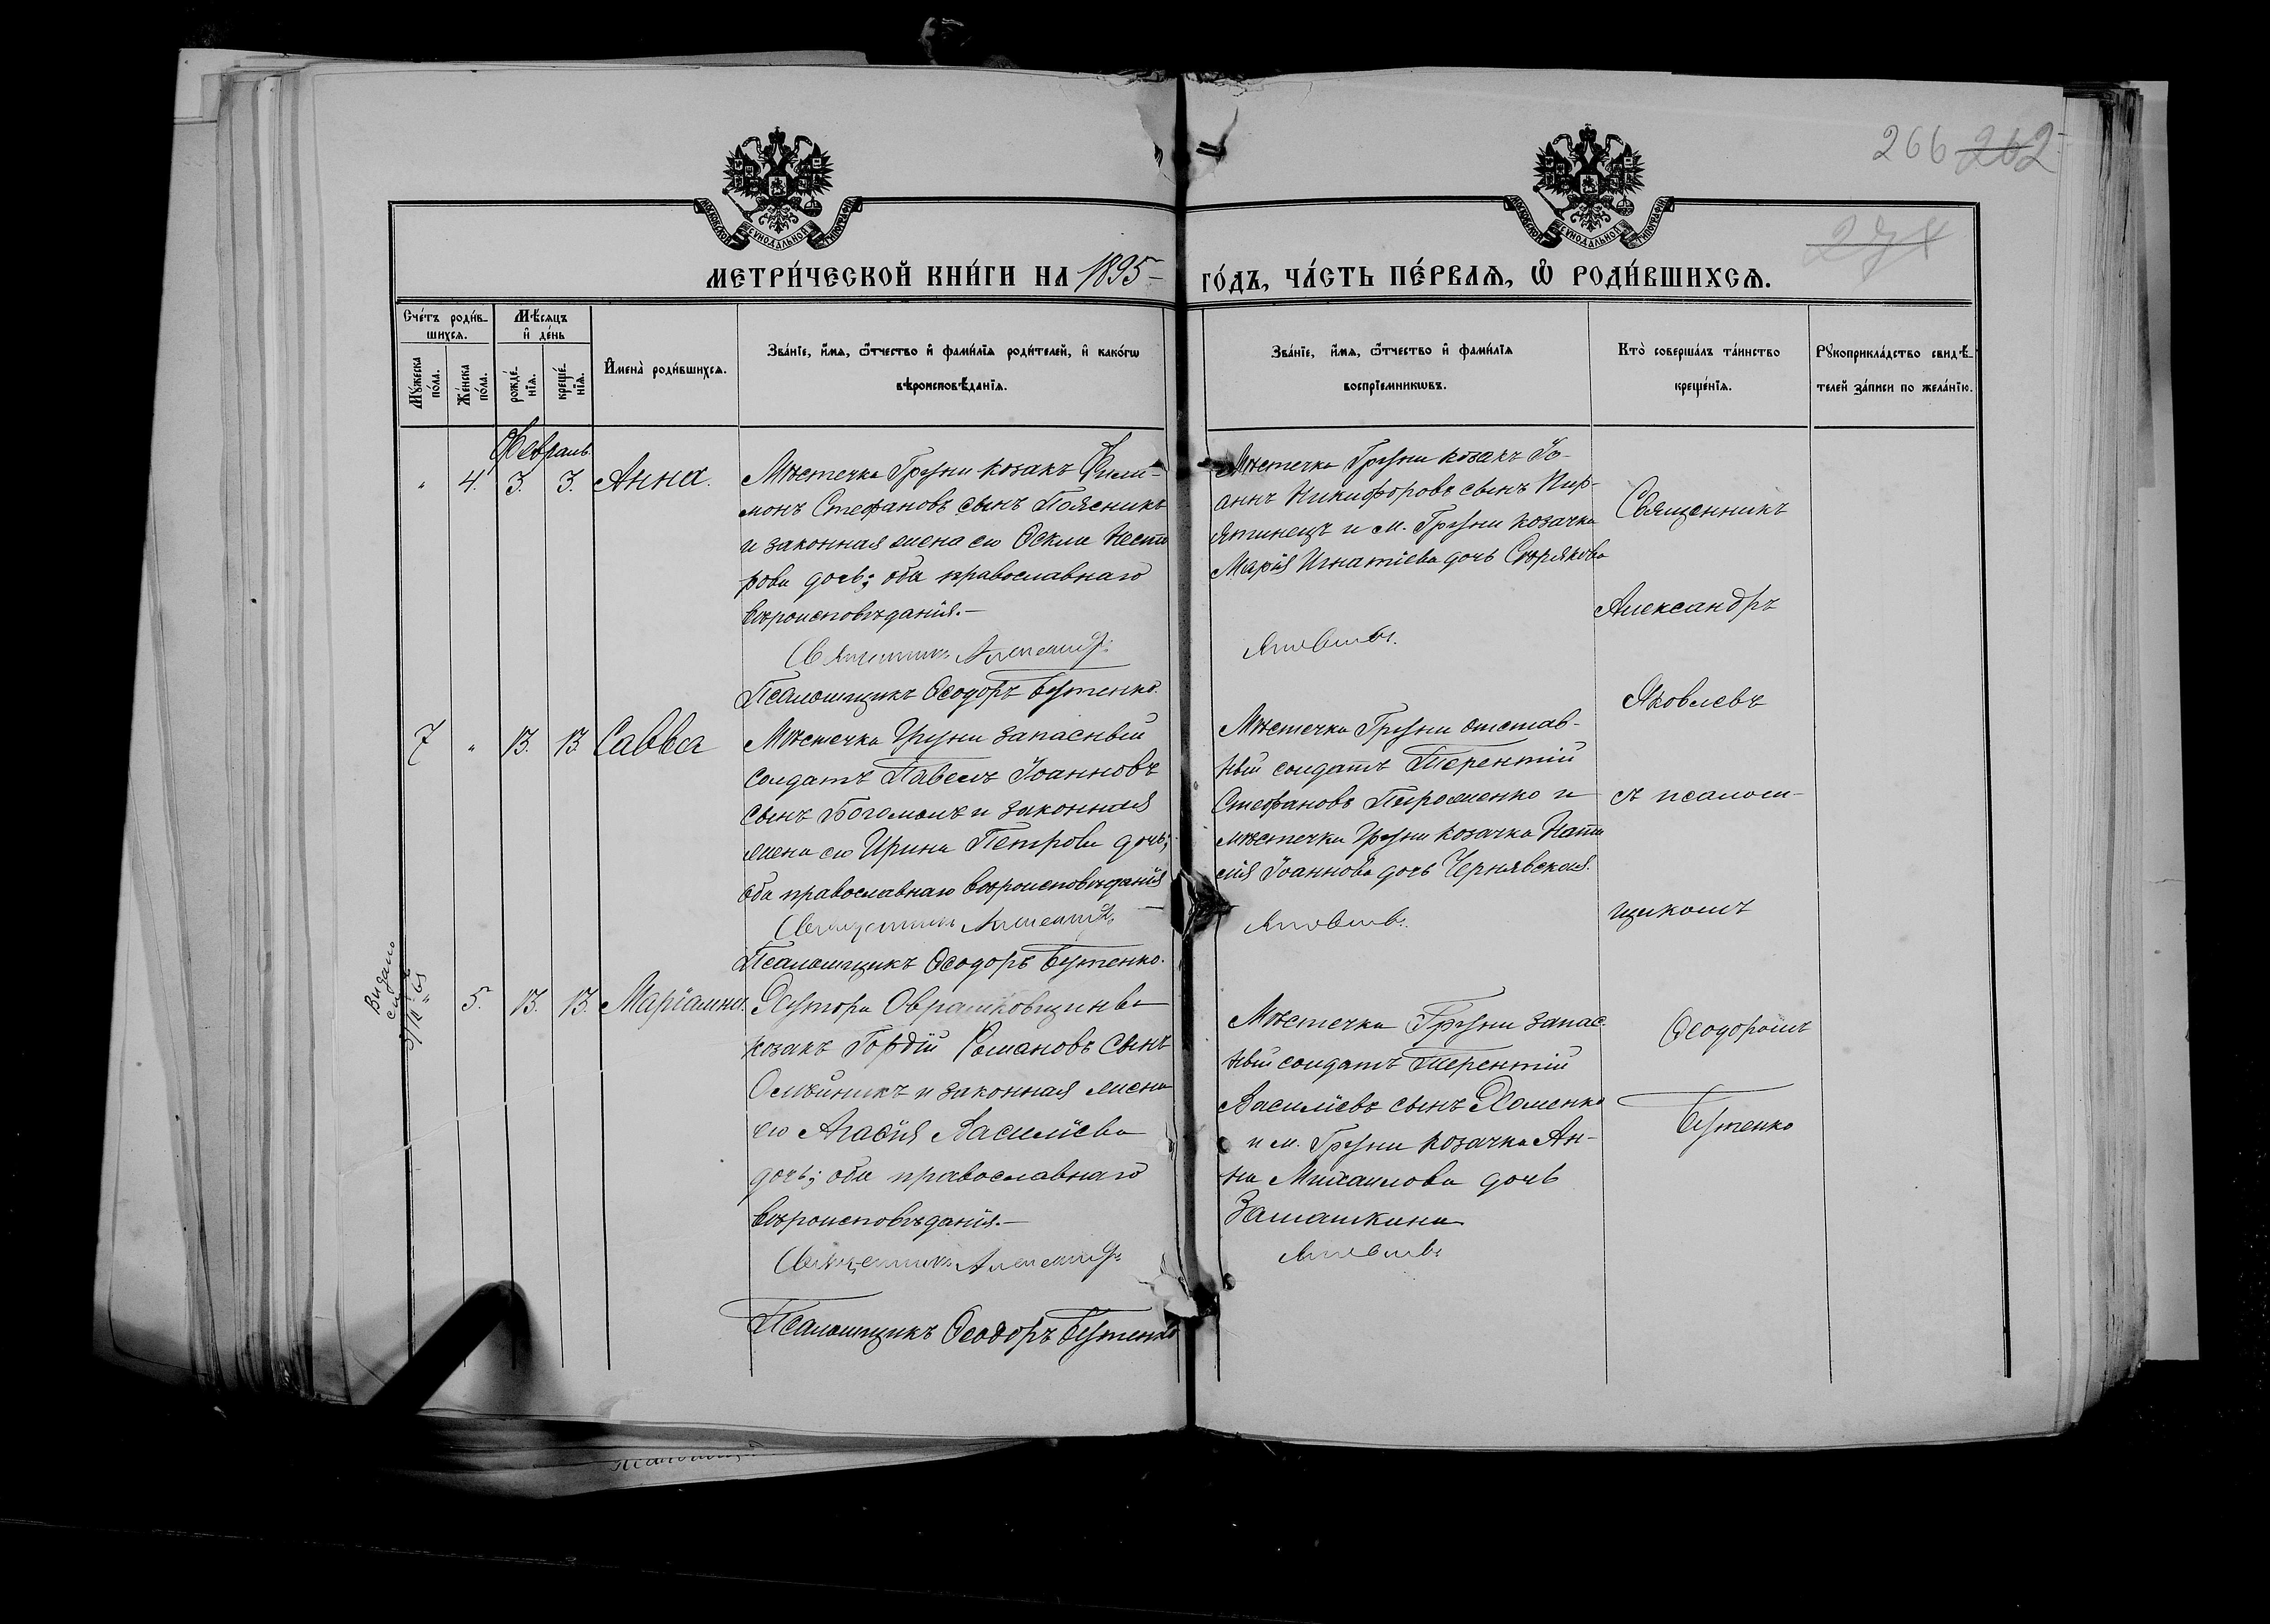 266 262
274
МОСКОВСКОЙ СѴНОДАЛЬНОЙ ТИПОГРАФІИ
МОСКОВСКОЙ СѴНОДАЛЬНОЙ ТИПОГРАФІИ
МЕТРИ́ЧЕСКОЙ КНИ́ГИ НА 1895 ГО́ДЪ, ЧА́СТЬ ПЕ́РВАѦ, Ѡ҆ РОДИ́ВШИХСѦ.
Сче́тъ роди́в-
шихсѧ.
Мꙋ́жеска по́ла.
Же́нска по́ла.
Мѣ́сѧцъ
и҆ де́нь
рожде́-нїѧ.
креще́-нїѧ.
И҆мена̀ роди́вшихсѧ.
Зва́нїе, и҆́мѧ, ѻ҆́тчество и҆ фами́лїѧ роди́телей, и҆ како́гѡ
вѣроисповѣ́данїѧ.
Зва́нїе, и҆́мѧ, ѻ҆́тчество и҆ фами́лїѧ
воспрїе́мникѡвъ.
Кто̀ соверша́лъ та́инство
креще́нїѧ.
Рꙋкоприкла́дство свидѣ́-
телей за́писи по жела́нїю.
Февраль
" 4. 3. 3. Анна.
Мѣстечка Груни козакъ Фили-
монъ Стефановъ сынъ Поясникъ
и законная жена его Ѳекла Несто
рова дочь; оба православнаго
вѣроисповѣданія.—
Священникъ Александръ
Псаломщикъ Ѳеодоръ Бутенко.
Мѣстечка Груни козакъ Іо-
аннъ Никифоровъ сынъ Пир-
ятинецъ и м. Груни козачка
Марія Игнатіева дочь Сѣрякова
Яковлевъ.
Священникъ
Александръ
Яковлевъ
съ псалом-
щикомъ
Ѳеодоромъ
Бутенко
7 " 13. 13 Савва
Мѣстечка Груни запасный
солдатъ Павелъ Іоанновъ
сынъ Богомолъ и законная
жена его Ирина Петрова дочь;
оба православнаго вѣроисповѣданія
Священникъ Александръ
Псаломщикъ Ѳеодоръ Бутенко.
Мѣстечка Груни отстав-
ный солдатъ Терентій
Стефановъ Пироженко и
мѣстечка Груни козачка Ната
лія Іоаннова дочь Чернявская.
Яковлевъ.
Видано
" 5. 13. 13. Маріамна.
Хутора Оврашковщины
козакъ Гордій Романовъ сынъ
Олѣйникъ и законная жена
его Агаѳія Василіева
дочь; оба православнаго
вѣроисповѣданія.—
Священникъ Александръ
Псаломщикъ Ѳеодоръ Бутенко
Мѣстечка Груни запас-
ный солдатъ Терентій
Василіевъ сынъ Хоменко
и м. Груни козачка Ан-
на Михаилова дочь
Замашкина
Яковлевъ